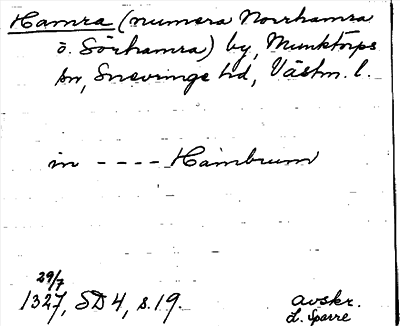 Hamra (numera Norrhamra
o. Sörhamra) by, Munktorps
sn, Snevringe hd, Västm. l.
in ---- Hambrum
29/7
1327, SD 4, s. 19.
avskr.
L. Sparre